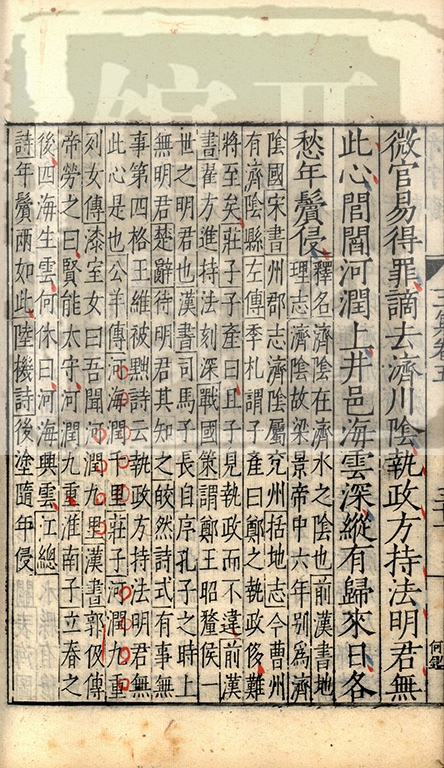 微官易得罪謫去濟川陰執政方持法明君無
此心閭閻河潤上井邑海雲深縱有歸來日各
愁年鬢侵
釋名濟陰在濟水之陰也前漢書地
理志濟陰故梁景帝中六年别為濟
陰國宋書州郡志濟陰屬兖州括地志今曹州
有濟陰縣左傳季札謂子產曰鄭之執政侈難
將至矣莊子子產曰且子見執政而不違前漢
書翟方進持法刻深戰國策謂鄭王昭釐侯一
世之明君也漢書司馬子長自序孔子之時上
無明君楚辭待明君其知之皎然詩式有事無
事第四格王維被黜詩云執政方持法明君無
此心是也公羊傳河海潤千里莊子河潤九重
列女傳漆室女曰吾聞河潤九里漢書郭伋傳
帝勞之曰賢能太守河潤九重淮南子立春之
後四海生雲何休曰河海興雲江總
詩年鬢兩如此陸機詩後塗隨年侵
何鑑